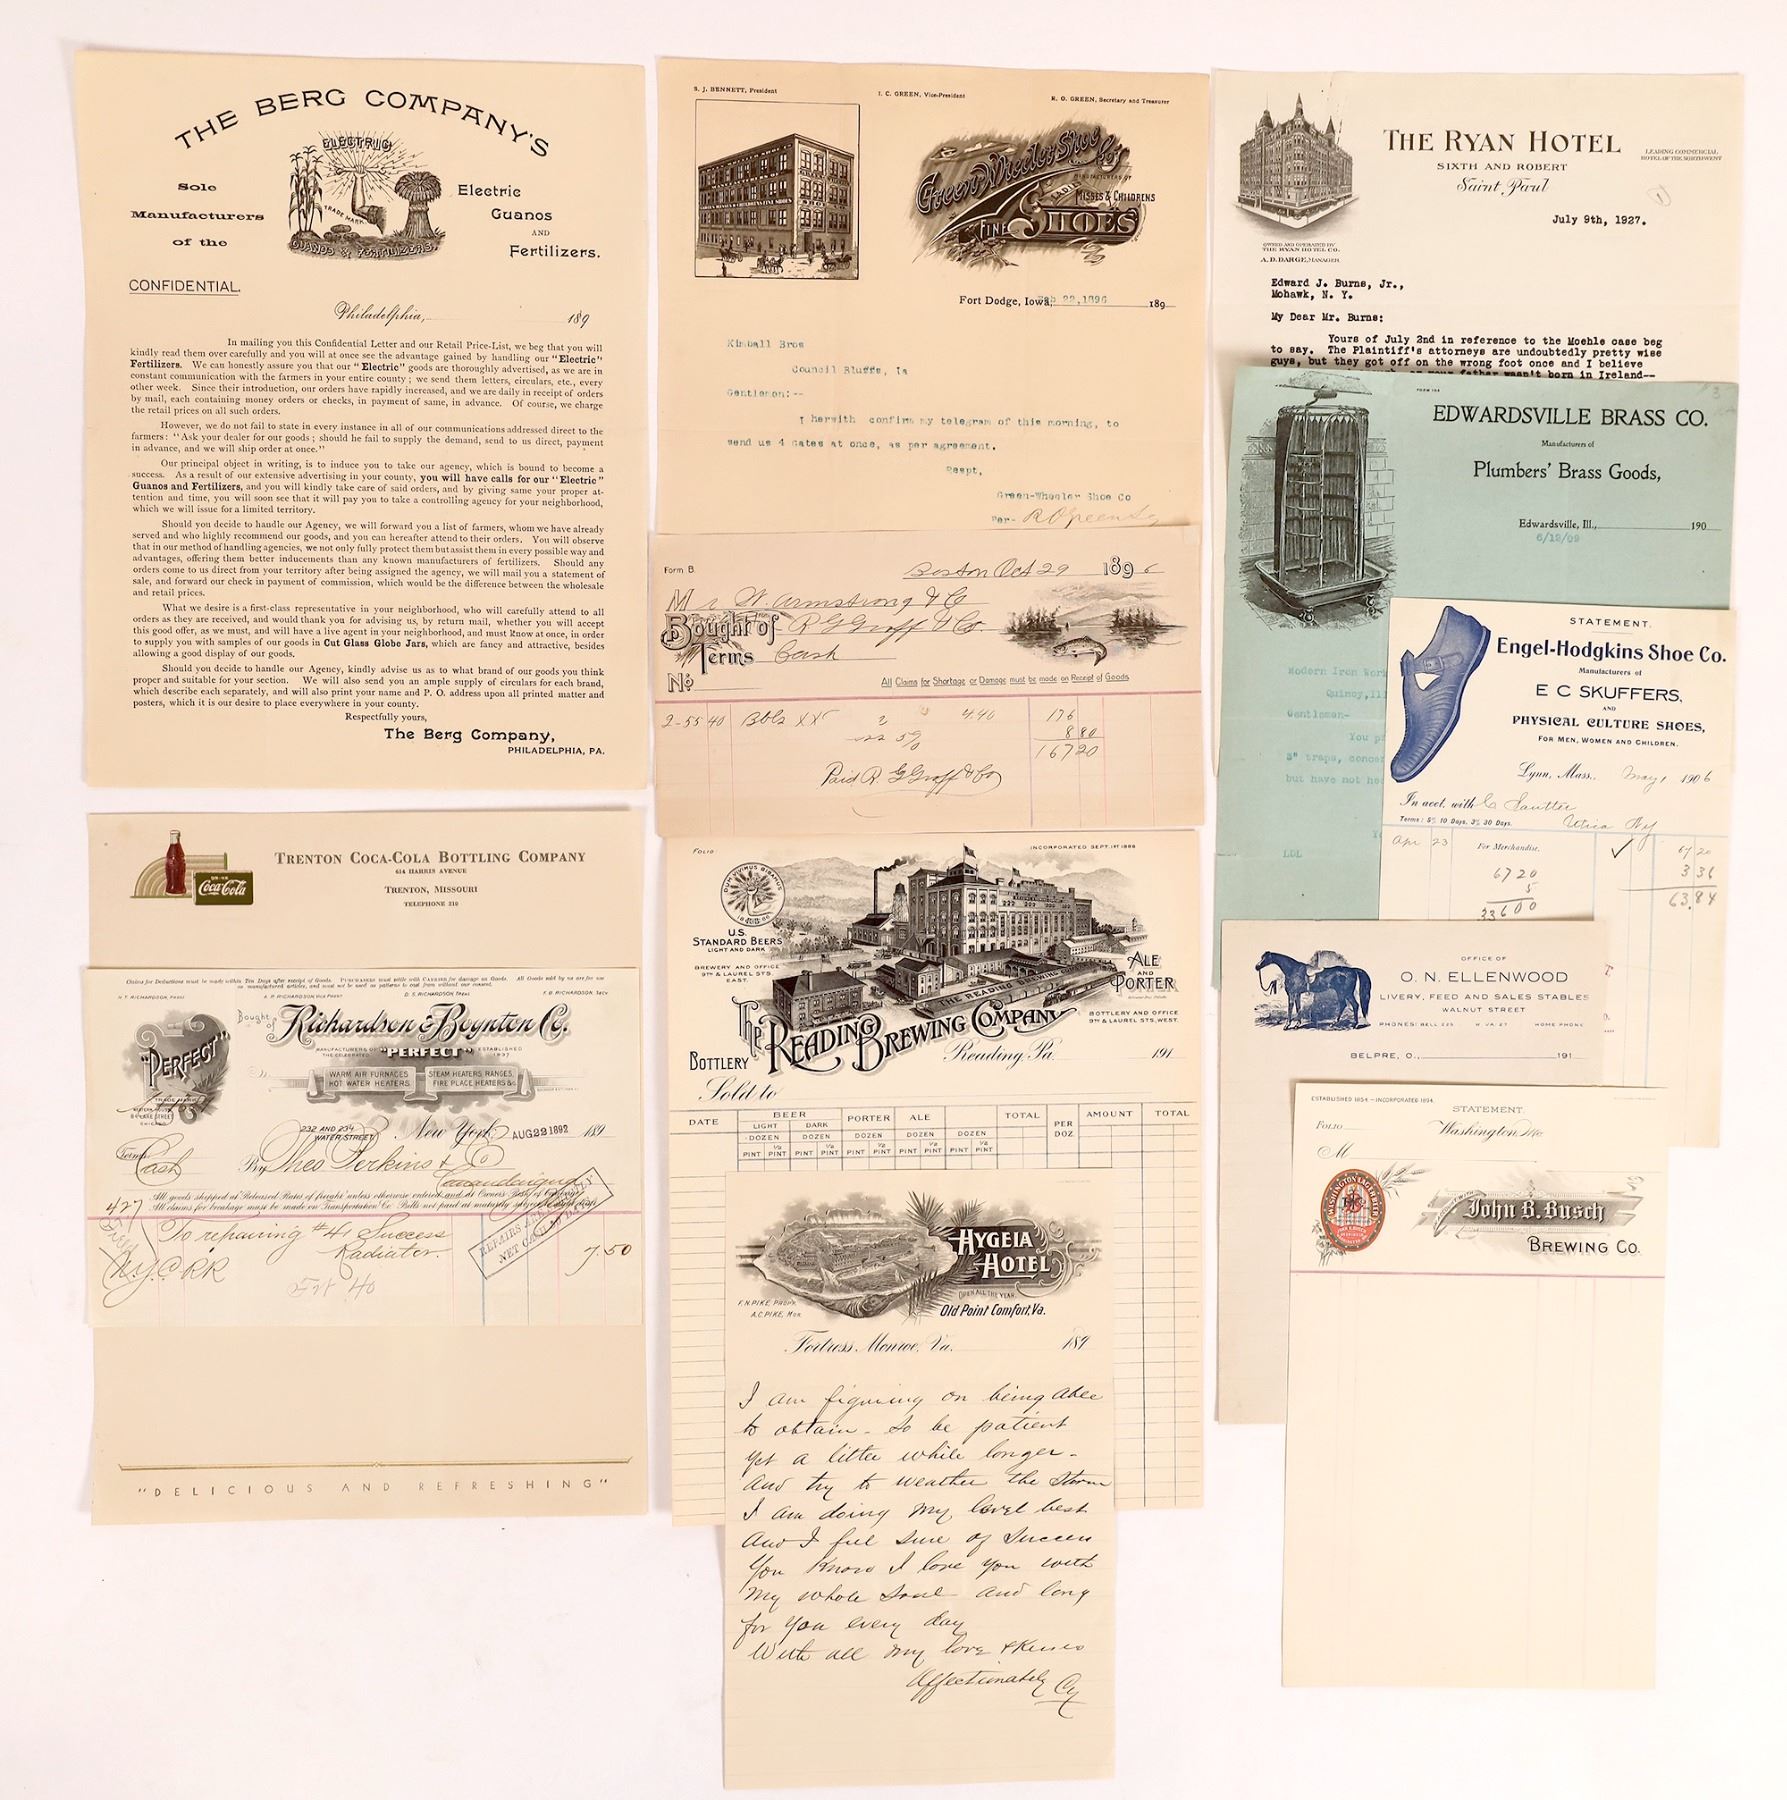 THE BERG COMPANY'S
ELECTRIC
TRADE MARK
GUANOS & FERTILIZERS.
Sole
Manufacturers
of the
Electric
Guanos
AND
Fertilizers.
CONFIDENTIAL.
Philadelphia, 189
In mailing you this Confidential Letter and our Retail Price-List, we beg that you will
kindly read them over carefully and you will at once see the advantage gained by handling our "Electric"
Fertilizers. We can honestly assure you that our "Electric" goods are thoroughly advertised, as we are in
constant communication with the farmers in your entire county; we send them letters, circulars, etc., every
other week. Since their introduction, our orders have rapidly increased, and we are daily in receipt of orders
by mail, each containing money orders or checks, in payment of same, in advance. Of course, we charge
the retail prices on all such orders.
However, we do not fail to state in every instance in all of our communications addressed direct to the
farmers: "Ask your dealer for our goods; should he fail to supply the demand, send to us direct, payment
in advance, and we will ship order at once."
Our principal object in writing, is to induce you to take our agency, which is bound to become a
success. As a result of our extensive advertising in your county, you will have calls for our "Electric"
Guanos and Fertilizers, and you will kindly take care of said orders, and by giving same your proper at-
tention and time, you will soon see that it will pay you to take a controlling agency for your neighborhood,
which we will issue for a limited territory.
Should you decide to handle our Agency, we will forward you a list of farmers, whom we have already
served and who highly recommend our goods, and you can hereafter attend to their orders. You will observe
that in our method of handling agencies, we not only fully protect them but assist them in every possible way and
advantages, offering them better inducements than any known manufacturers of fertilizers. Should any
orders come to us direct from your territory after being assigned the agency, we will mail you a statement of
sale, and forward our check in payment of commission, which would be the difference between the wholesale
and retail prices.
What we desire is a first-class representative in your neighborhood, who will carefully attend to all
orders as they are received, and would thank you for advising us, by return mail, whether you will accept
this good offer, as we must, and will have a live agent in your neighborhood, and must know at once, in order
to supply you with samples of our goods in Cut Glass Globe Jars, which are fancy and attractive, besides
allowing a good display of our goods.
Should you decide to handle our Agency, kindly advise us as to what brand of our goods you think
proper and suitable for your section. We will also send you an ample supply of circulars for each brand,
which describe each separately, and will also print your name and P. O. address upon all printed matter and
posters, which it is our desire to place everywhere in your county.
Respectfully yours,
The Berg Company,
PHILADELPHIA, PA.
TRENTON COCA-COLA BOTTLING COMPANY
614 HARRIS AVENUE
TRENTON, MISSOURI
TELEPHONE 210
DRINK
Coca-Cola
Claims for Deductions must be made within Ten Days after receipt of Goods. PURCHASERS must settle with CARRIER for damage on Goods. All Goods sold by us are for use
as manufactured articles, and must not be used as patterns to cast from without our consent.
H. T. RICHARDSON, PREST. A. P. RICHARDSON, VICE PREST. D. S. RICHARDSON, TREAS. F. B. RICHARDSON, SECY.
Bought of Richardson & Boynton Co.
MANUFACTURERS OF THE CELEBRATED "PERFECT" ESTABLISHED 1837
WARM AIR FURNACES HOT WATER HEATERS
STEAM HEATERS, RANGES, FIRE PLACE HEATERS &c.
"PERFECT"
TRADE MARK
84 LAKE STREET
CHICAGO
232 AND 234
WATER STREET
New York, AUG 22 1892 189
Terms Cash
By Theo Perkins & Co
Canandaigua
427
All goods shipped at Released Rates of freight unless otherwise ordered and at Owner's Risk of breakage
To repairing #41 Success
Radiator. 7.50
REPAIRS ARE STRICTLY
NET CASH
N.Y.C RR
"DELICIOUS AND REFRESHING"
S. J. BENNETT, President I. C. GREEN, Vice-President R. O. GREEN, Secretary and Treasurer
Green-Wheeler Shoe Co's
MANUFACTURERS OF
LADIES
MISSES & CHILDRENS
FINE SHOES
Fort Dodge, Iowa, Feb 22, 1896 189
Kimball Bros
Council Bluffs, Ia
Gentlemen:--
I herwith confirm my telegram of this morning, to
send us 4 Gates at once, as per agreement.
Respt,
Green-Wheeler Shoe Co
Per- R O Green
Form B
Boston Oct 29 1896
M r W. Armstrong & Co
Bought of R G Graff & Co.
Terms Cash
No.
All Claims for Shortage or Damage must be made on Receipt of Goods
2-55 40 Bbls XXX 2 4.40 176
5% 8 80
167 20
Paid R. G Graff & Co
FOLIO INCORPORATED SEPT. 1ST 1886
DUM VIVIMUS BIBAMUS
U.S.
STANDARD BEERS
LIGHT AND DARK
BREWERY AND OFFICE
9TH & LAUREL STS.
EAST.
ALE
AND
PORTER
BOTTLERY AND OFFICE
9TH & LAUREL STS. WEST.
THE READING BREWING COMPANY
The Reading Brewing Company
BOTTLERY Reading, Pa. 191
Sold to
DATE BEER PORTER ALE TOTAL PER DOZ. AMOUNT TOTAL
LIGHT DARK
DOZEN DOZEN DOZEN DOZEN DOZEN
PINT ½ PINT PINT ½ PINT PINT ½ PINT PINT ½ PINT PINT ½ PINT
HYGEIA
HOTEL
OPEN ALL THE YEAR.
Old Point Comfort, Va.
F. N. PIKE, PROPR.
A. C. PIKE, MGR.
Fortress Monroe, Va. 189
I am figuring on being able
to obtain - so be patient
yet a little while longer -
and try to weather the storm
I am doing my level best
and I feel sure of success
You know I love you with
my whole soul and long
for you every day
With all my love & Kisses
Affectionately Cy
THE RYAN HOTEL
SIXTH AND ROBERT
Saint Paul
LEADING COMMERCIAL
HOTEL OF THE NORTHWEST
OWNED AND OPERATED BY
THE RYAN HOTEL CO.
A. D. DARGE, MANAGER
July 9th, 1927.
Edward J. Burns, Jr.,
Mohawk, N. Y.
My Dear Mr. Burns:
Yours of July 2nd in reference to the Moehle case beg
to say. The Plaintiff's attorneys are undoubtedly pretty wise
guys, but they got off on the wrong foot once and I believe
your father wasn't born in Ireland--
EDWARDSVILLE BRASS CO.
Manufacturers of
Plumbers' Brass Goods,
Edwardsville, Ill., 190
6/12/09
Modern Iron Work
Quincy, Ill
Gentlemen-
You
traps,
but have not he
LDL
STATEMENT.
Engel-Hodgkins Shoe Co.
Manufacturers of
E C SKUFFERS,
AND
PHYSICAL CULTURE SHOES,
FOR MEN, WOMEN AND CHILDREN.
Lynn, Mass., May 1 1906
In acct. with C Sautter
Terms: 5% 10 Days, 3% 30 Days. Utica NY
Apr 23 For Merchandise. 67 20
67 20 3 36
5 63.84
33600
OFFICE OF
O. N. ELLENWOOD
LIVERY, FEED AND SALES STABLES
WALNUT STREET
PHONES: BELL 225 W. VA. 27 HOME PHONE
BELPRE, O., 191
ESTABLISHED 1854.-INCORPORATED 1894.
STATEMENT.
FOLIO Washington, Mo.
M
WASHINGTON LAGER BEER
John B. Busch
BREWING CO.